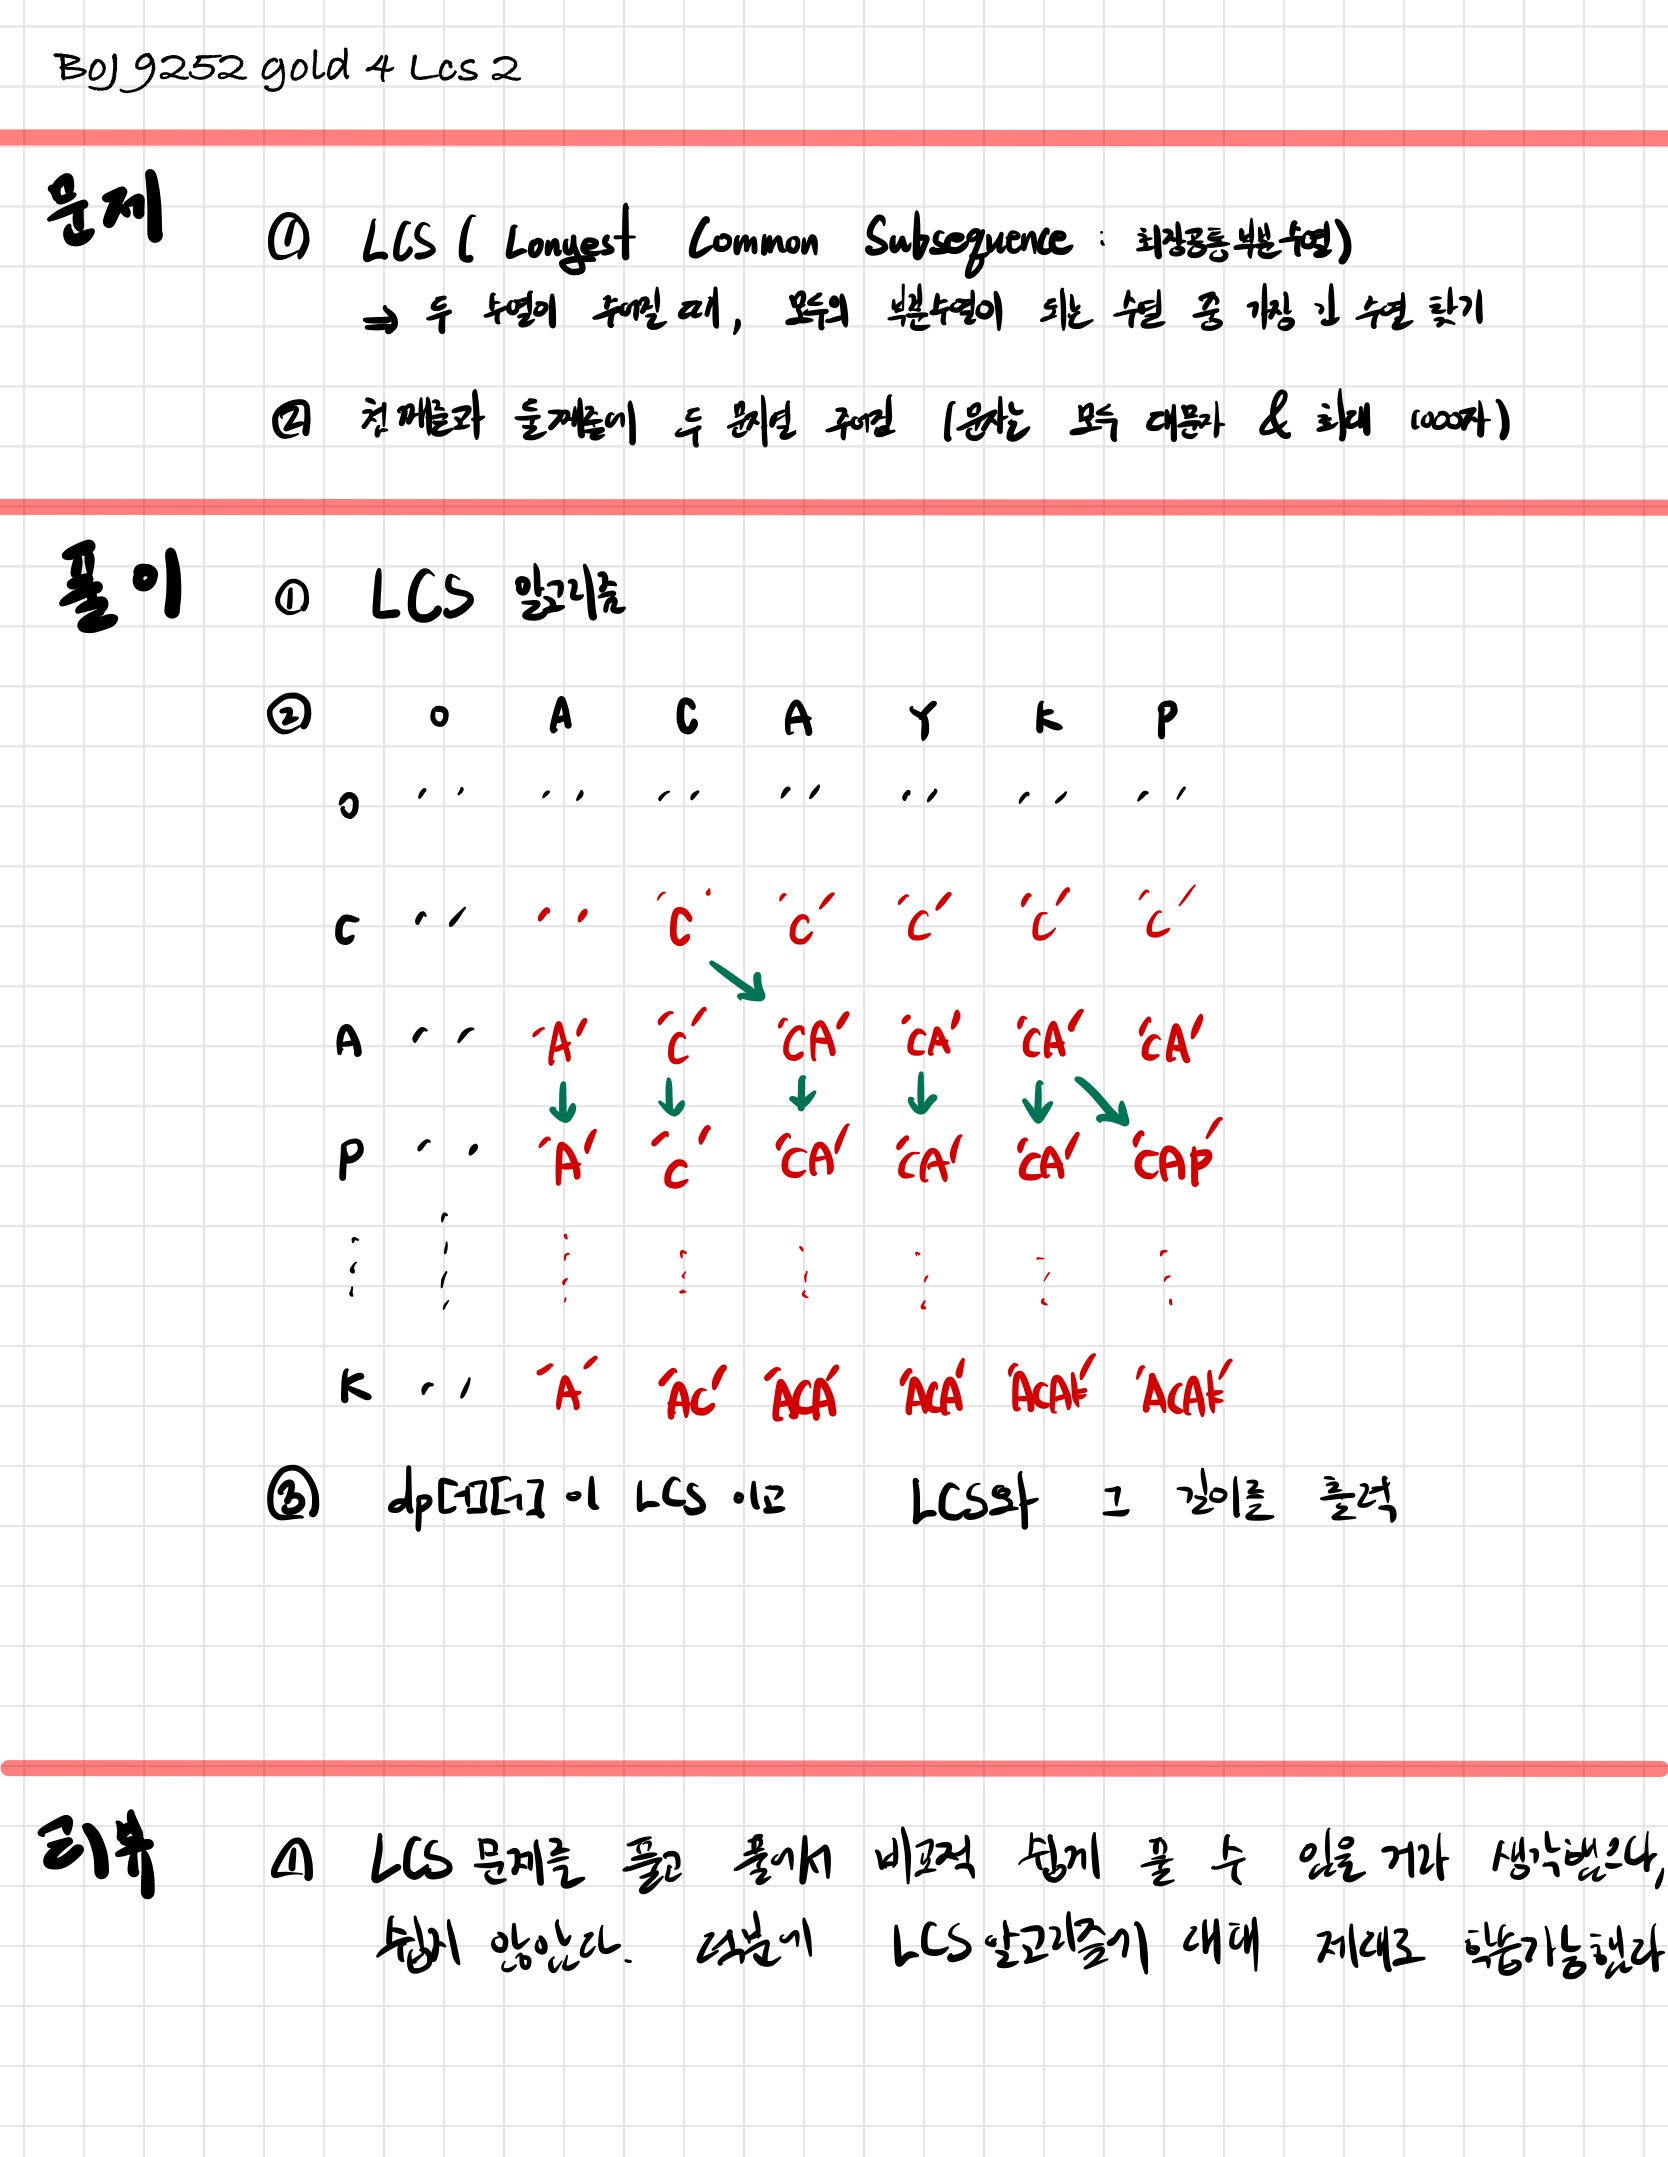 BOJ 9252 gold 4 Lcs 2
문제
① LCS ( Longest Common Subsequence : 최장공통부분수열)
⇒ 두 수열이 주어질 때, 모두의 부분수열이 되는 수열 중 가장 긴 수열 찾기
② 첫째줄과 둘째줄에 두 문자열 주어짐 (문자는 모두 대문자 & 최대 1000자)
풀이
① LCS 알고리즘
② 0 A C A Y K P
0 '' '' '' '' '' '' ''
C '' '' 'C' 'C' 'C' 'C' 'C'
A '' 'A' 'C' 'CA' 'CA' 'CA' 'CA'
P '' 'A' 'C' 'CA' 'CA' 'CA' 'CAP'
K '' 'A' 'AC' 'ACA' 'ACA' 'ACAK' 'ACAK'
③ dp[-1][-1] 이 LCS 이고 LCS와 그 길이를 출력
리뷰
① LCS 문제를 풀고 풀어서 비교적 쉽게 풀 수 있을 거라 생각했으나,
쉽지 않았다. 덕분에 LCS 알고리즘에 대해 제대로 학습가능했다